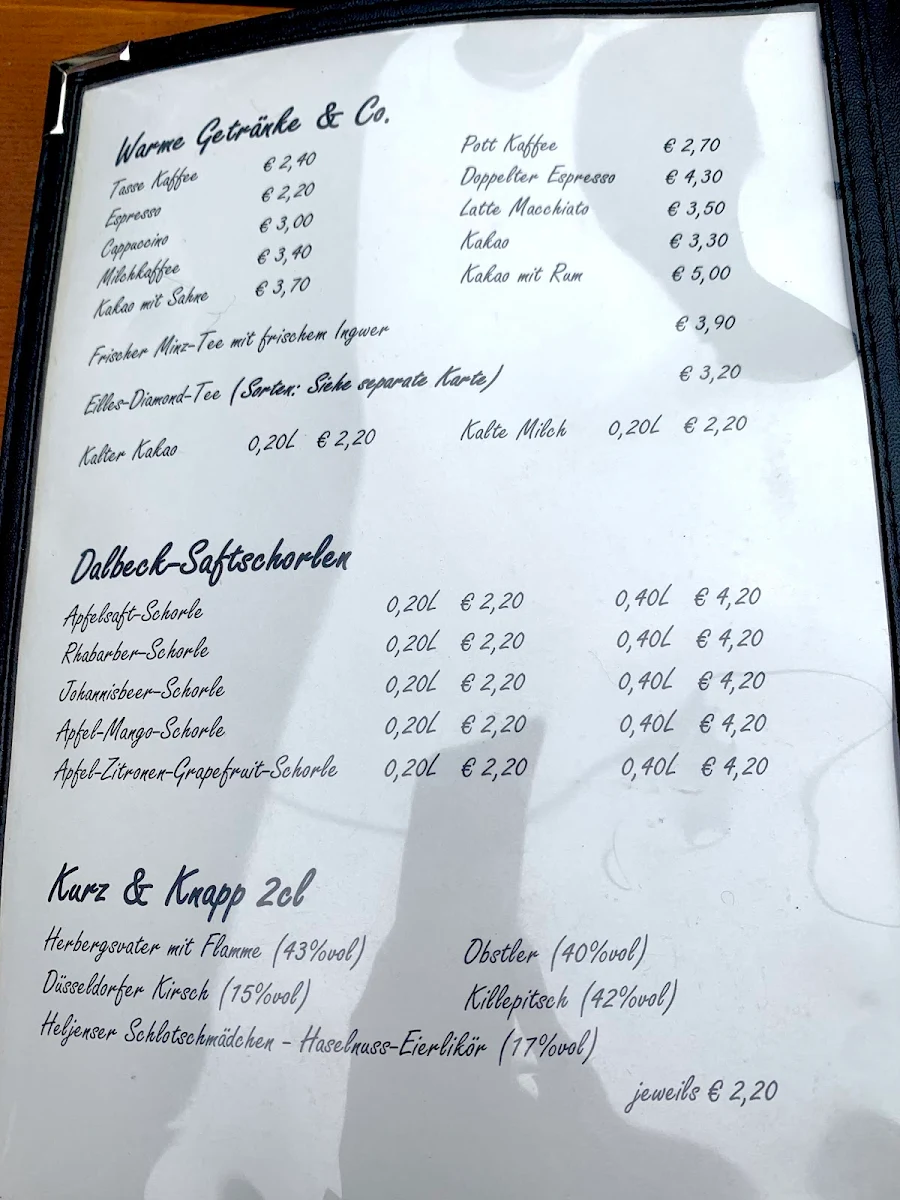 Warme Getränke & Co.
Tasse Kaffee € 2,40
Pott Kaffee € 2,70
Espresso € 2,20
Doppelter Espresso € 4,30
Cappuccino € 3,00
Latte Macchiato € 3,50
Milchkaffee € 3,40
Kakao € 3,30
Kakao mit Sahne € 3,70
Kakao mit Rum € 5,00
Frischer Minz-Tee mit frischem Ingwer € 3,90
Eilles-Diamond-Tee (Sorten: Siehe separate Karte) € 3,20
Kalter Kakao 0,20L € 2,20
Kalte Milch 0,20L € 2,20
Dalbeck-Saftschorlen
Apfelsaft-Schorle 0,20L € 2,20 0,40L € 4,20
Rhabarber-Schorle 0,20L € 2,20 0,40L € 4,20
Johannisbeer-Schorle 0,20L € 2,20 0,40L € 4,20
Apfel-Mango-Schorle 0,20L € 2,20 0,40L € 4,20
Apfel-Zitronen-Grapefruit-Schorle 0,20L € 2,20 0,40L € 4,20
Kurz & Knapp 2cl
Herbergsvater mit Flamme (43%vol)
Obstler (40%vol)
Düsseldorfer Kirsch (15%vol)
Killepitsch (42%vol)
Heljenser Schlotschmädchen - Haselnuss-Eierlikör (17%vol)
jeweils € 2,20